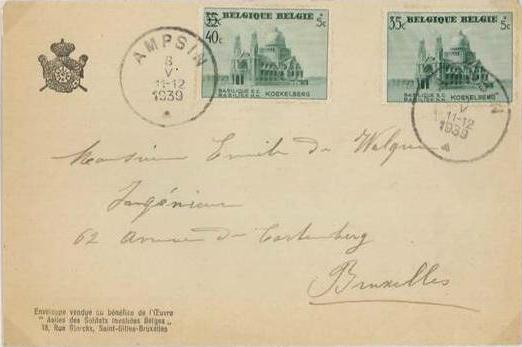 AMPSIN
8
V
11-12
1939
35c BELGIQUE BELGIE +
40c 5c
BASILIQUE S.C.
KOEKELBERG
35c BELGIQUE BELGIE +
5c
BASILIQUE S.C.
KOEKELBERG
V
11-12
1939
Monsieur Emile De
Ingénieur
62 Avenue de Cortenberg
Bruxelles
Enveloppe vendue au bénéfice de l'Œuvre
" Asiles des Soldats Invalides Belges "
18, Rue Gierckx, Saint-Gilles-Bruxelles